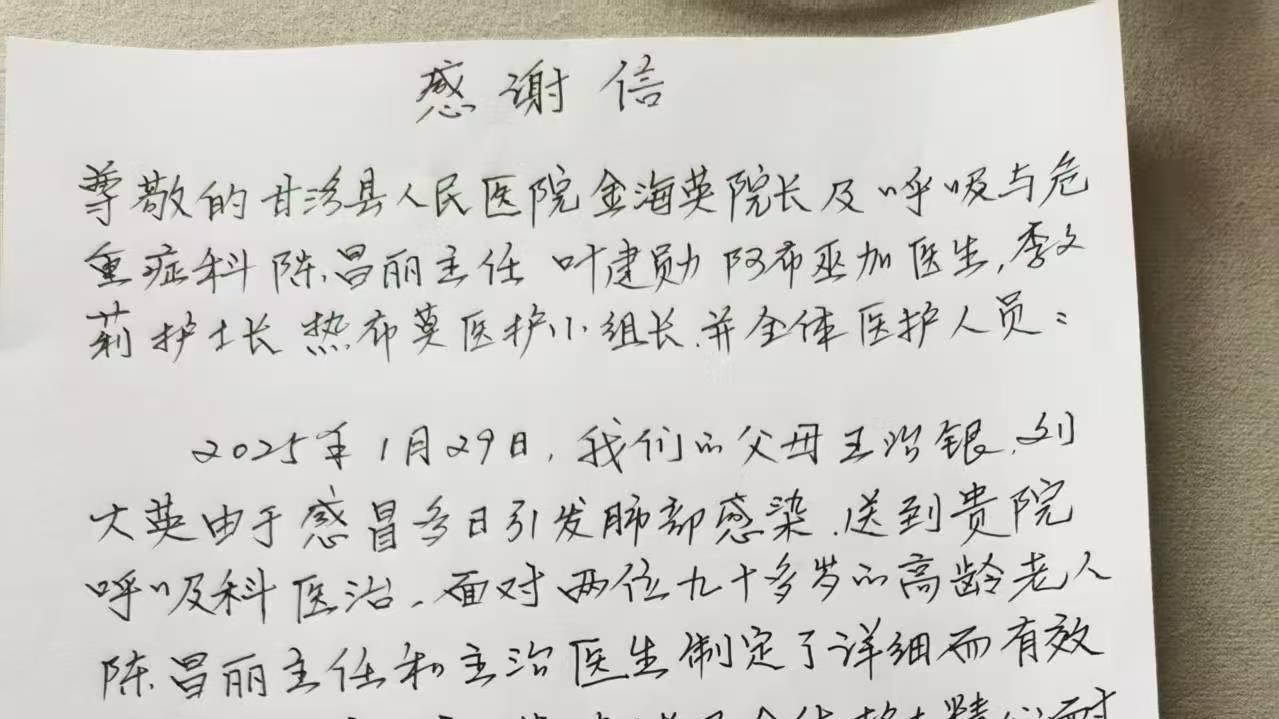 感谢信
尊敬的甘洛县人民医院金海英院长及呼吸与危
重症科陈昌丽主任 叶建勋 阿布巫加医生,李文
莉护士长 热布莫医护小组长.并全体医护人员:
2025年1月29日,我们的父母王治银.刘
大英由于感冒多日引发肺部感染.送到贵院
呼吸科医治.面对两位九十多岁的高龄老人
陈昌丽主任和主治医生制定了详细而有效